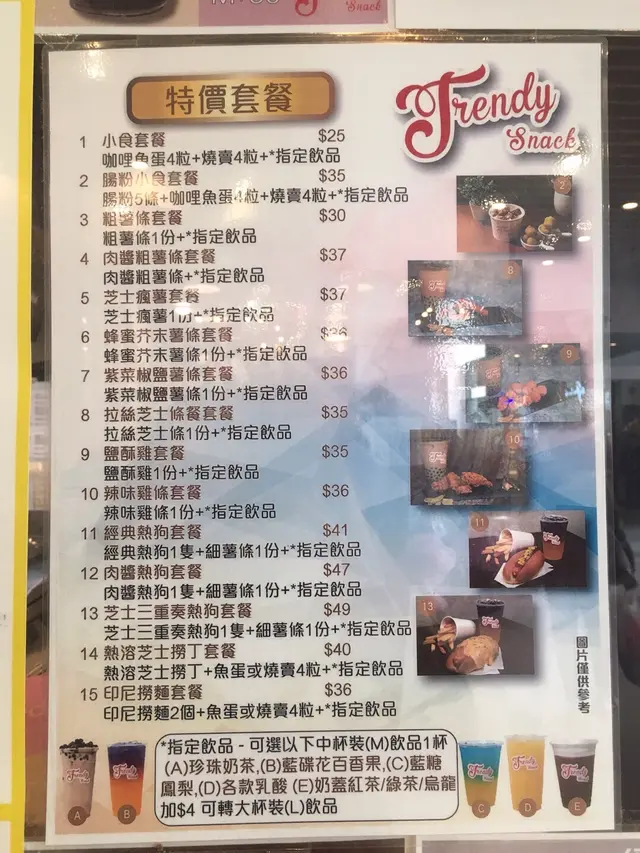 Snack
特價套餐
Trendy
Snack
1 小食套餐 $25
咖哩魚蛋4粒+燒賣4粒+*指定飲品
2 腸粉小食套餐 $35
腸粉5條+咖哩魚蛋4粒+燒賣4粒+*指定飲品
3 粗薯條套餐 $30
粗薯條1份+*指定飲品
4 肉醬粗薯條套餐 $37
肉醬粗薯條+*指定飲品
5 芝士瘋薯套餐 $37
芝士瘋薯1份+*指定飲品
6 蜂蜜芥末薯條套餐 $36
蜂蜜芥末薯條1份+*指定飲品
7 紫菜椒鹽薯條套餐 $36
紫菜椒鹽薯條1份+*指定飲品
8 拉絲芝士條餐套餐 $35
拉絲芝士條1份+*指定飲品
9 鹽酥雞套餐 $35
鹽酥雞1份+*指定飲品
10 辣味雞條套餐 $36
辣味雞條1份+*指定飲品
11 經典熱狗套餐 $41
經典熱狗1隻+細薯條1份+*指定飲品
12 肉醬熱狗套餐 $47
肉醬熱狗1隻+細薯條1份+*指定飲品
13 芝士三重奏熱狗套餐 $49
芝士三重奏熱狗1隻+細薯條1份+*指定飲品
14 熱溶芝士撈丁套餐 $40
熱溶芝士撈丁+魚蛋或燒賣4粒+*指定飲品
15 印尼撈麵套餐 $36
印尼撈麵2個+魚蛋或燒賣4粒+*指定飲品
2
8
9
10
11
13
圖片僅供參考
*指定飲品 - 可選以下中杯裝(M)飲品1杯
(A)珍珠奶茶,(B)藍碟花百香果,(C)藍糖
鳳梨,(D)各款乳酸 (E)奶蓋紅茶/綠茶/烏龍
加$4 可轉大杯裝(L)飲品
A
B
C
D
E